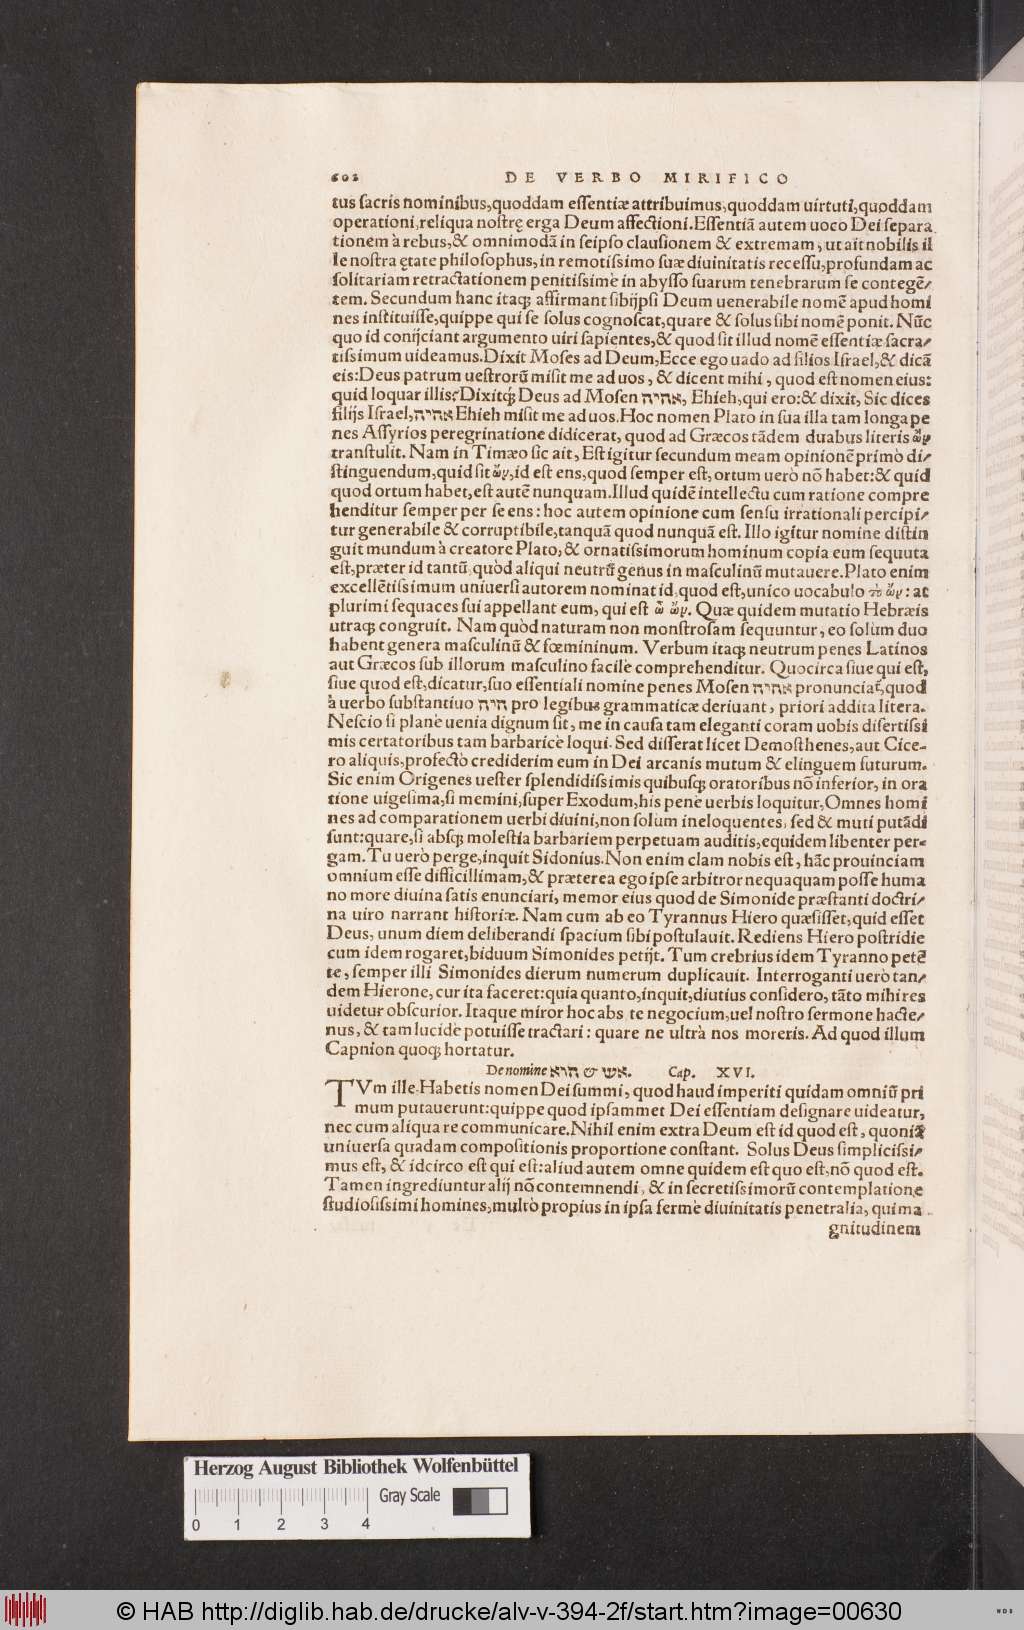 602 DE VERBO MIRIFICO
tus sacris nominibus, quoddam essentiæ attribuimus, quoddam uirtuti, quoddam
operationi, reliqua nostrę erga Deum affectioni. Essentiã autem uoco Dei separa
tionem à rebus, & omnimodã in seipso clausionem & extremam, ut ait nobilis il
le nostra ętate philosophus, in remotissimo suæ diuinitatis recessu, profundam ac
solitariam retractationem penitissimè in abysso suarum tenebrarum se contegẽ/
tem. Secundum hanc itaq; affirmant sibijpsi Deum uenerabile nomẽ apud homi
nes instituisse, quippe qui se solus cognoscat, quare & solus sibi nomẽ ponit. Nũc
quo id conijciant argumento uiri sapientes, & quod sit illud nomẽ essentiæ sacra/
tissimum uideamus. Dixit Moses ad Deum, Ecce ego uado ad filios Israel, & dicã
eis: Deus patrum uestrorũ misit me ad uos, & dicent mihi, quod est nomen eius:
quid loquar illis? Dixitq; Deus ad Mosen אהיה, Ehieh, qui ero: & dixit, Sic dices
filijs Israel, אהיה Ehieh misit me ad uos. Hoc nomen Plato in sua illa tam longa pe
nes Assyrios peregrinatione didicerat, quod ad Græcos tãdem duabus literis ὢν
transtulit. Nam in Timæo sic ait, Est igitur secundum meam opinionẽ primò di/
stinguendum, quid sit ὢν, id est ens, quod semper est, ortum uerò nõ habet: & quid
quod ortum habet, est autẽ nunquam. Illud quidẽ intellectu cum ratione compre
henditur semper per se ens: hoc autem opinione cum sensu irrationali percipi/
tur generabile & corruptibile, tanquã quod nunquã est. Illo igitur nomine distin
guit mundum à creatore Plato, & ornatissimorum hominum copia eum sequuta
est, præter id tantũ, quòd aliqui neutrũ genus in masculinũ mutauere. Plato enim
excellẽtissimum uniuersi autorem nominat id, quod est, unico uocabulo τὸ ὢν: at
plurimi sequaces sui appellant eum, qui est ὁ ὢν. Quæ quidem mutatio Hebræis
utraq; congruit. Nam quòd naturam non monstrosam sequuntur, eo solum duo
habent genera masculinũ & fœmininum. Verbum itaq; neutrum penes Latinos
aut Græcos sub illorum masculino facilè comprehenditur. Quocirca siue qui est,
siue quod est, dicatur, suo essentiali nomine penes Mosen אהיה pronunciat᷑, quod
à uerbo substantiuo היה pro legibus grammaticæ deriuant, priori addita litera.
Nescio si planè uenia dignum sit, me in causa tam eleganti coram uobis disertissi
mis certatoribus tam barbaricè loqui. Sed disserat licet Demosthenes, aut Cice-
ro aliquis, profectò crediderim eum in Dei arcanis mutum & elinguem futurum.
Sic enim Origenes uester splendidissimis quibusq; oratoribus nõ inferior, in ora
tione uigesima, si memini, super Exodum, his penè uerbis loquitur, Omnes homi
nes ad comparationem uerbi diuini, non solum ineloquentes, sed & muti putãdi
sunt: quare, si absq; molestia barbariem perpetuam auditis, equidem libenter per-
gam. Tu uerò perge, inquit Sidonius. Non enim clam nobis est, hãc prouinciam
omnium esse difficillimam, & præterea ego ipse arbitror nequaquam posse huma
no more diuina satis enunciari, memor eius quod de Simonide præstanti doctri/
na uiro narrant historiæ. Nam cum ab eo Tyrannus Hiero quæsisset, quid esset
Deus, unum diem deliberandi spacium sibi postulauit. Rediens Hiero postridie
cum idem rogaret, biduum Simonides petijt. Tum crebrius idem Tyranno petẽ
te, semper illi Simonides dierum numerum duplicauit. Interroganti uerò tan/
dem Hierone, cur ita faceret: quia quanto, inquit, diutius considero, tãto mihi res
uidetur obscurior. Itaque miror hoc abs te negocium, uel nostro sermone hacte/
nus, & tam lucidè potuisse tractari: quare ne ultrà nos moreris. Ad quod illum
Capnion quoq; hortatur.
De nomine הוא & אש. Cap. XVI.
TVm ille. Habetis nomen Dei summi, quod haud imperiti quidam omniũ pri
mum putauerunt: quippe quod ipsammet Dei essentiam designare uideatur,
nec cum aliqua re communicare. Nihil enim extra Deum est id quod est, quoniã
uniuersa quadam compositionis proportione constant. Solus Deus simplicissi/
mus est, & idcirco est qui est: aliud autem omne quidem est quo est, nõ quod est.
Tamen ingrediuntur alij nõ contemnendi, & in secretissimorũ contemplatione
studiosissimi homines, multò propius in ipsa fermè diuinitatis penetralia, qui ma
gnitudinem
Herzog August Bibliothek Wolfenbüttel
Gray Scale
0 1 2 3 4
© HAB http://diglib.hab.de/drucke/alv-v-394-2f/start.htm?image=00630